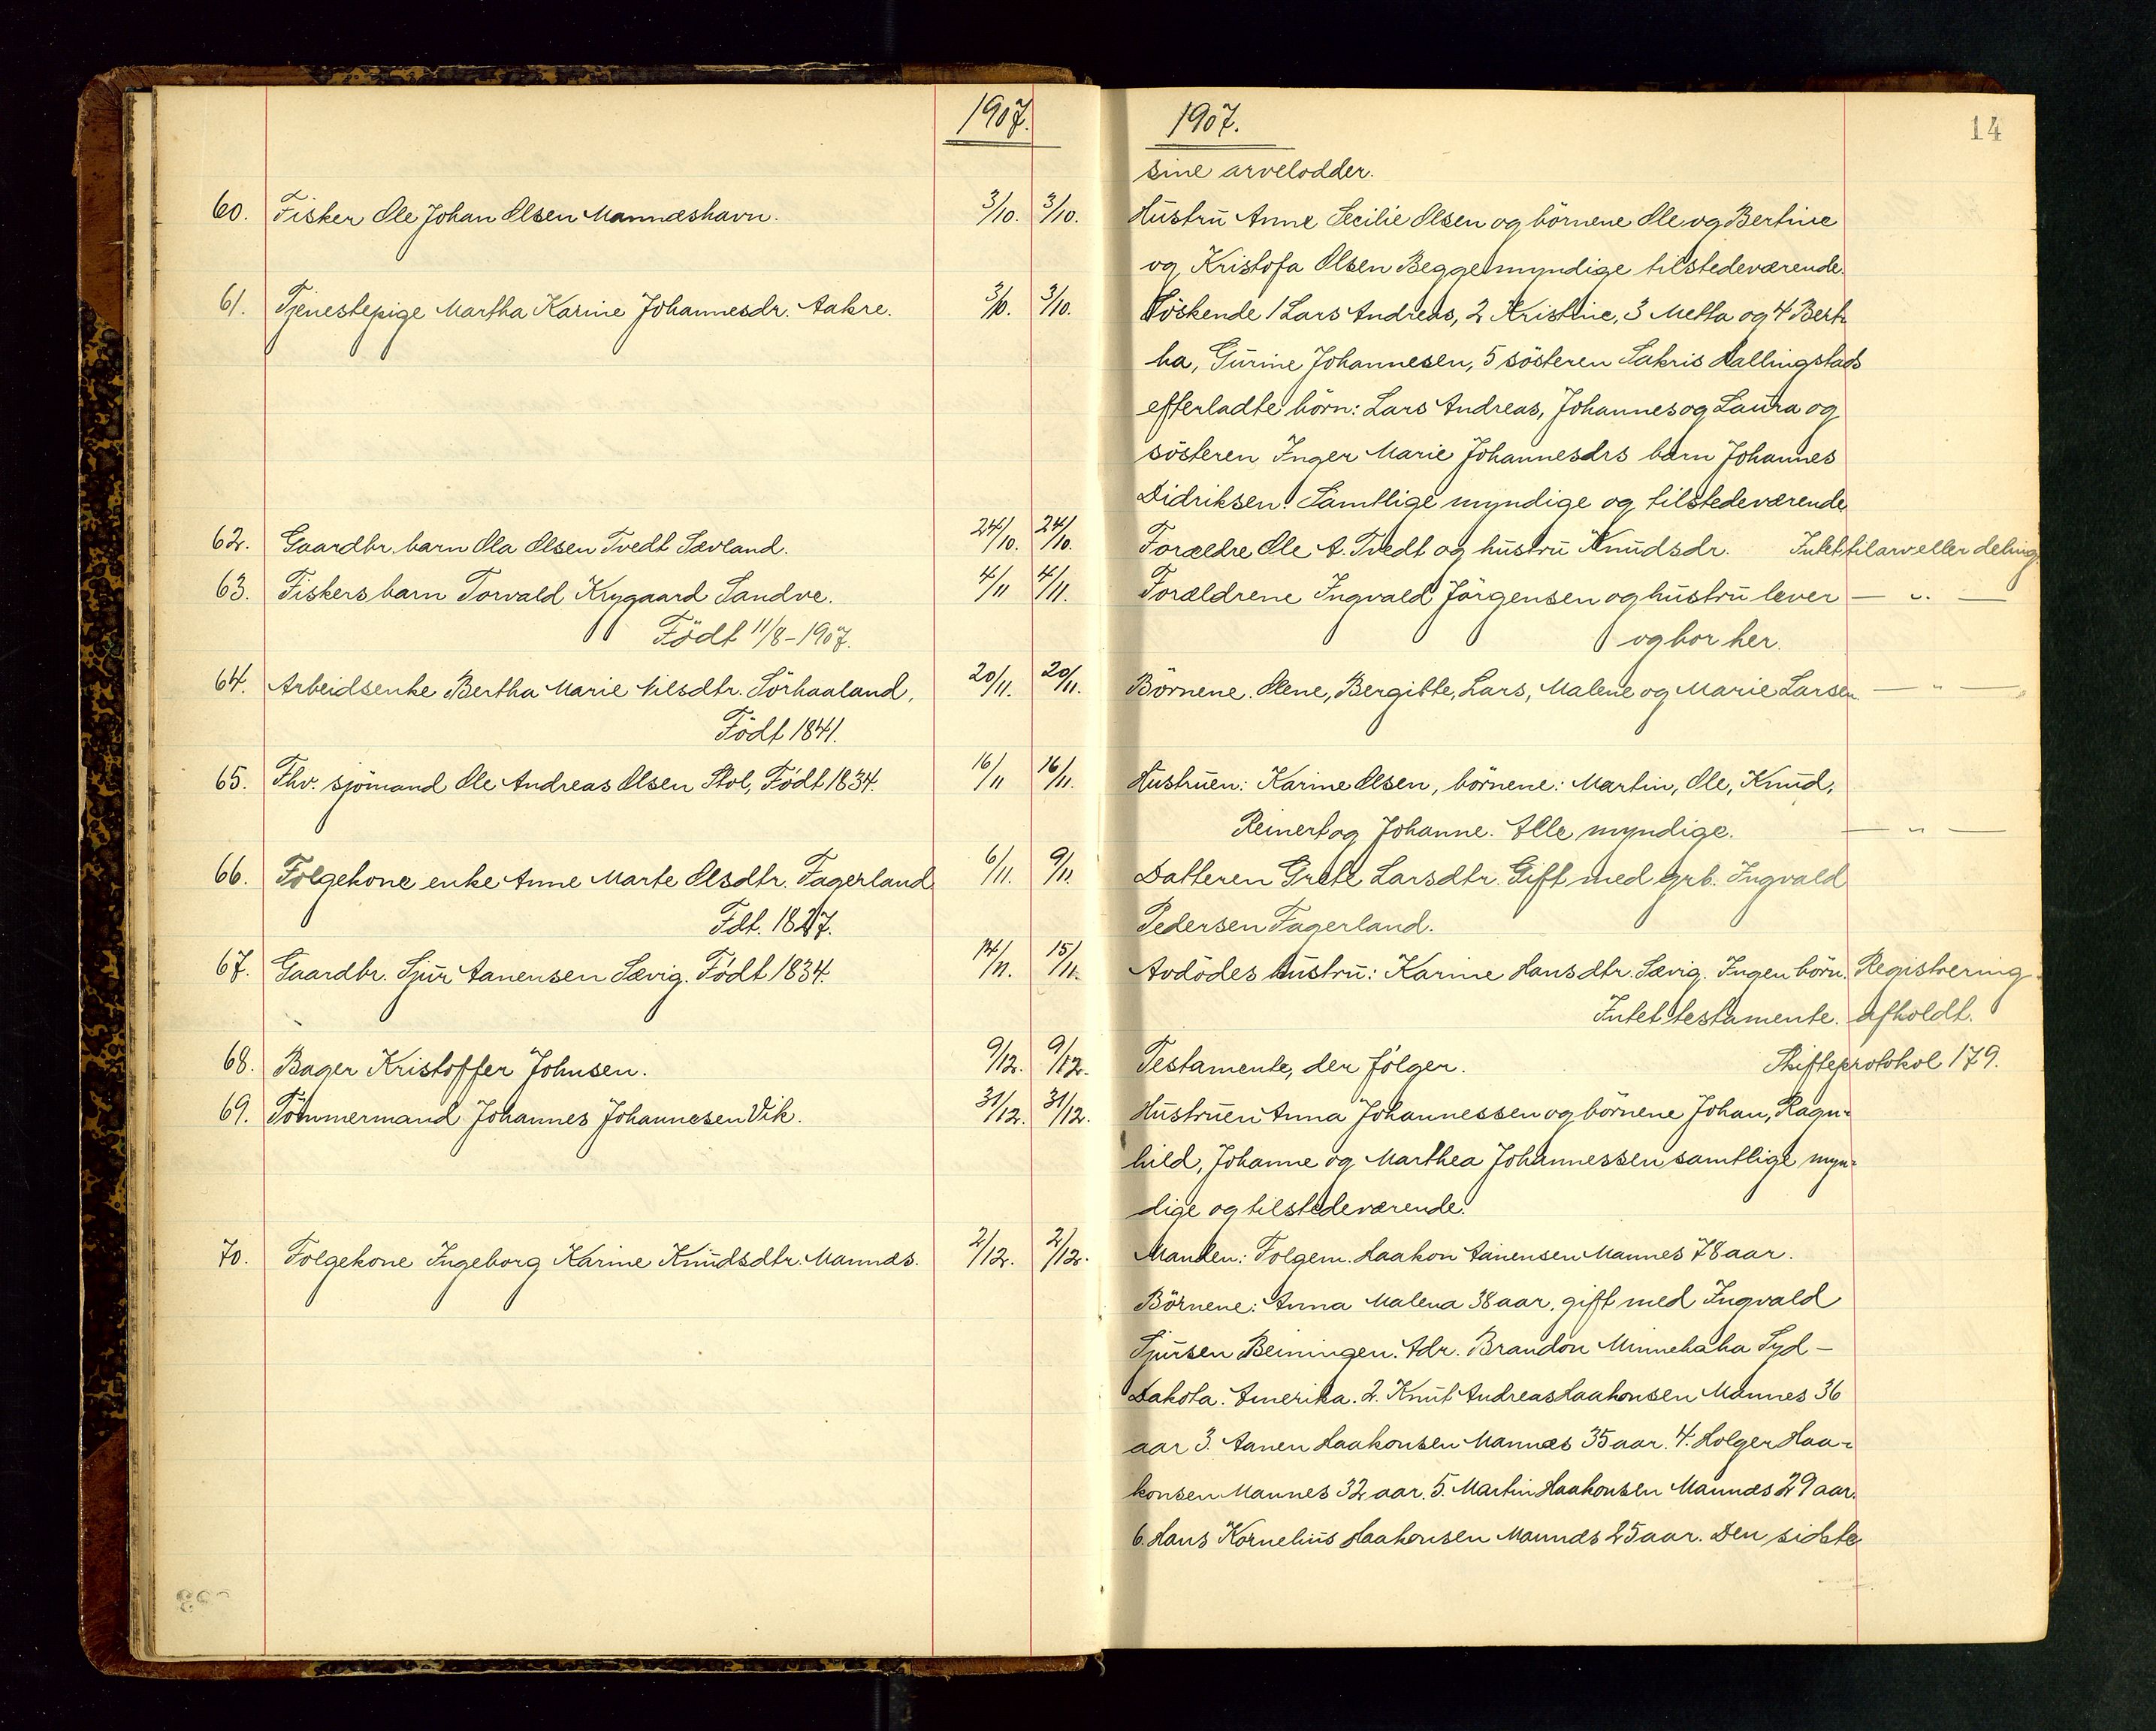 1907.
60. Fisker Ole Johan Olsen Mannæshavn. 3/10. 3/10.
61. Tjenestepige Martha Karine Johannesdr. Aakre. 3/10. 3/10.
62. Gaardbr. barn Ola Olsen Tvedt Sævland. 24/10. 24/10.
63. Fiskers barn Torvald Krygaard Sandve. 4/11 4/11.
Födt 11/8-1907.
64. Arbeidsenke Bertha Marie Nilsdtr. Sörhaaland, 20/11. 20/11.
Födt 1841.
65. Fhv. sjömand Ole Andreas Olsen Stol, Födt 1834. 16/11 16/11.
66. Folgekone enke Anne Marte Olsdtr. Fagerland 6/11. 9/11.
Fdt. 1827.
67. Gaardbr. Sjur Aanensen Sævig. Födt 1834. 14/11. 15/11.
68. Bager Kristoffer Johnsen. 9/12. 9/12.
69. Tömmermand Johannes Johannesen Vik. 31/12. 31/12.
70. Folgekone Ingeborg Karine Knudsdtr. Mannæs. 2/12. 2/12.
1907.
14
sine arvelodder.
Hustru Anne Secilie Olsen og börnene Ole og Bertine
og Kristofa Olsen Begge myndige tilstedeværende.
Söskende 1 Lars Andreas, 2 Kristine, 3 Metta og 4 Bert
ha, Gurine Johannesen, 5 sösteren Sakris Hallingstads
efterladte börn: Lars Andreas, Johannes og Laura og
sösteren Inger Marie Johannesdrs barn Johannes
Didriksen. Samtlige myndige og tilstedeværende
Forældre Ole A. Tvedt og hustru Knudsdr. Intet til arv eller deling.
Forældrene Ingvald Jörgensen og hustru lever — " —
og bor her.
Börnene. Olene, Bergitte, Lars, Malene og Marie Larsen. — " —
Hustruen: Karine Olsen, börnene: Martin, Ole, Knud,
Reinert og Johanne. Alle myndige. — " —
Datteren Grete Larsdtr. Gift med grb. Ingvald
Pedersen Fagerland.
Avdödes hustru: Karine Hansdtr. Sævig. Ingen börn. Registrering
Intet testamente. afholdt.
Testamente, der fölger. Skifteprotokol 179.
Hustruen Anna Johannessen og börnene Johan, Ragn-
hild, Johanne og Marthea Johannessen samtlige myn-
dige og tilstedeværende.
Manden: Folgem. Haakon Aanensen Mannes 78 aar.
Börnene: Anna Malena 38 aar, gift med Ingvald
Sjursen Beiningen. Adr. Brandon Minnehaha Syd-
Dakota. Amerika. 2. Knut Andreas Haakonsen Mannes 36
aar 3. Aanen Haakonsen Mannes 35 aar. 4. Holger Haa-
konsen Mannes 32 aar. 5. Martin Haakonsen Mannæs 29 aar.
6. Hans Kornelius Haakonsen Mannæs 25 aar. Den sidste